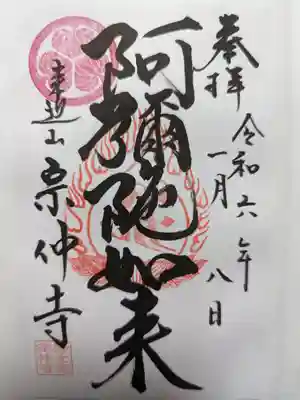 奉拝
令和六年
一月八日
阿彌陀如来
来迎山
宗仲寺